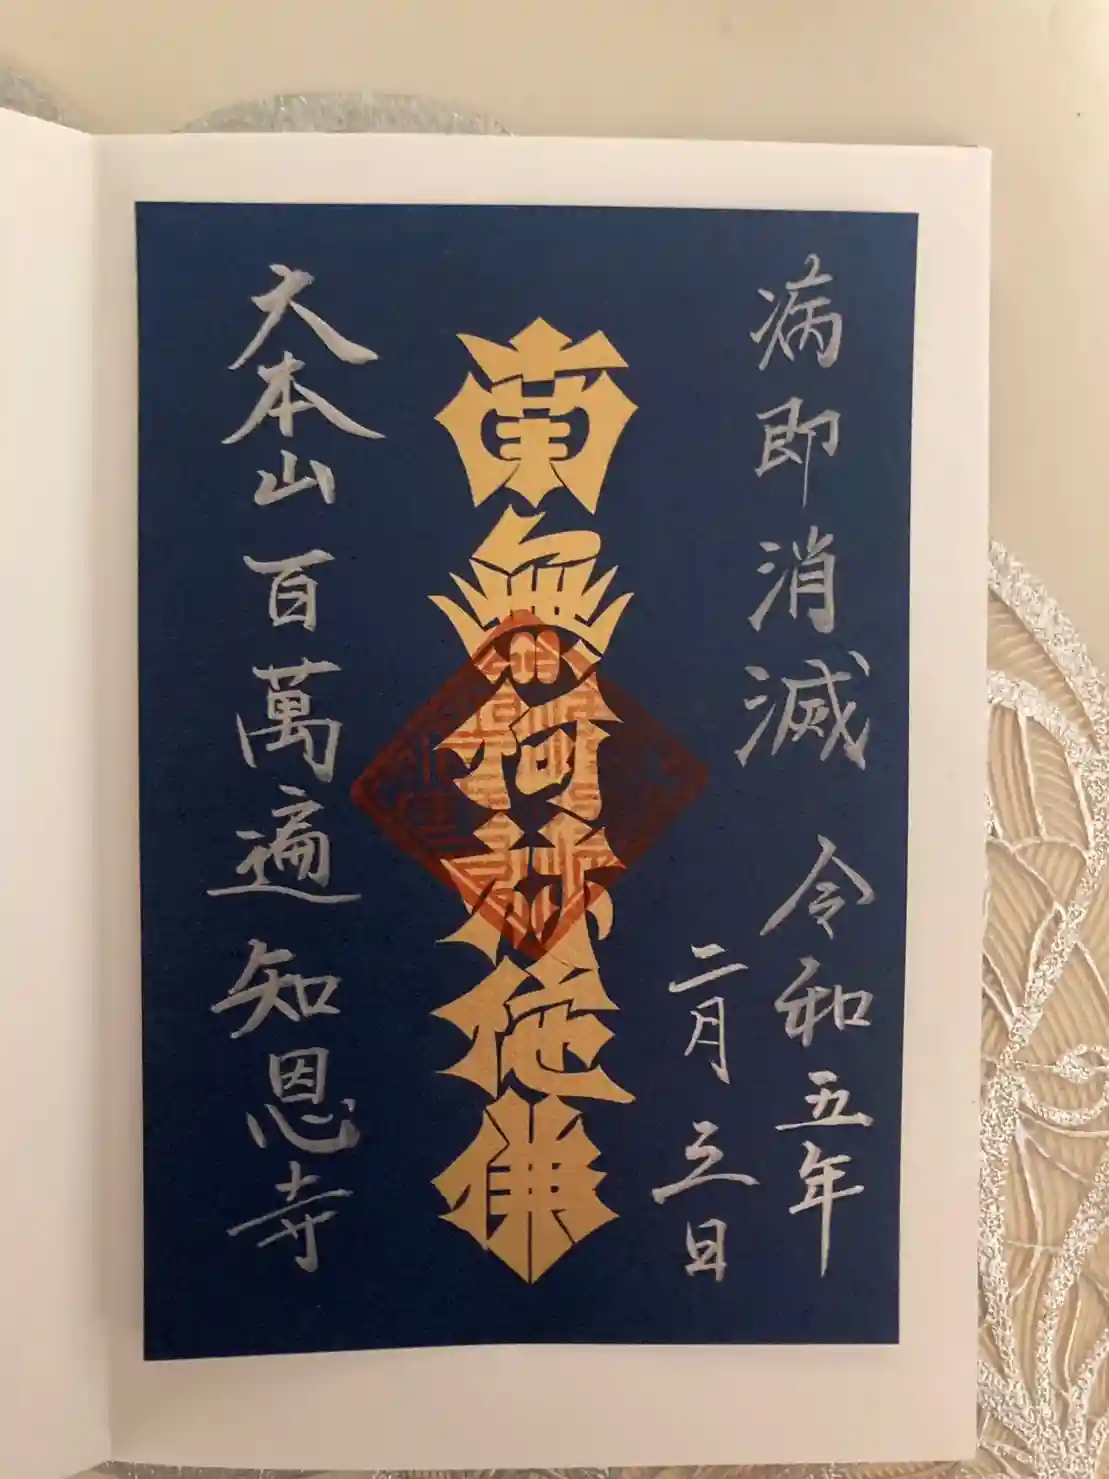 病即消滅 令和五年
二月三日
南無阿弥陀佛
大本山 百萬遍 知恩寺